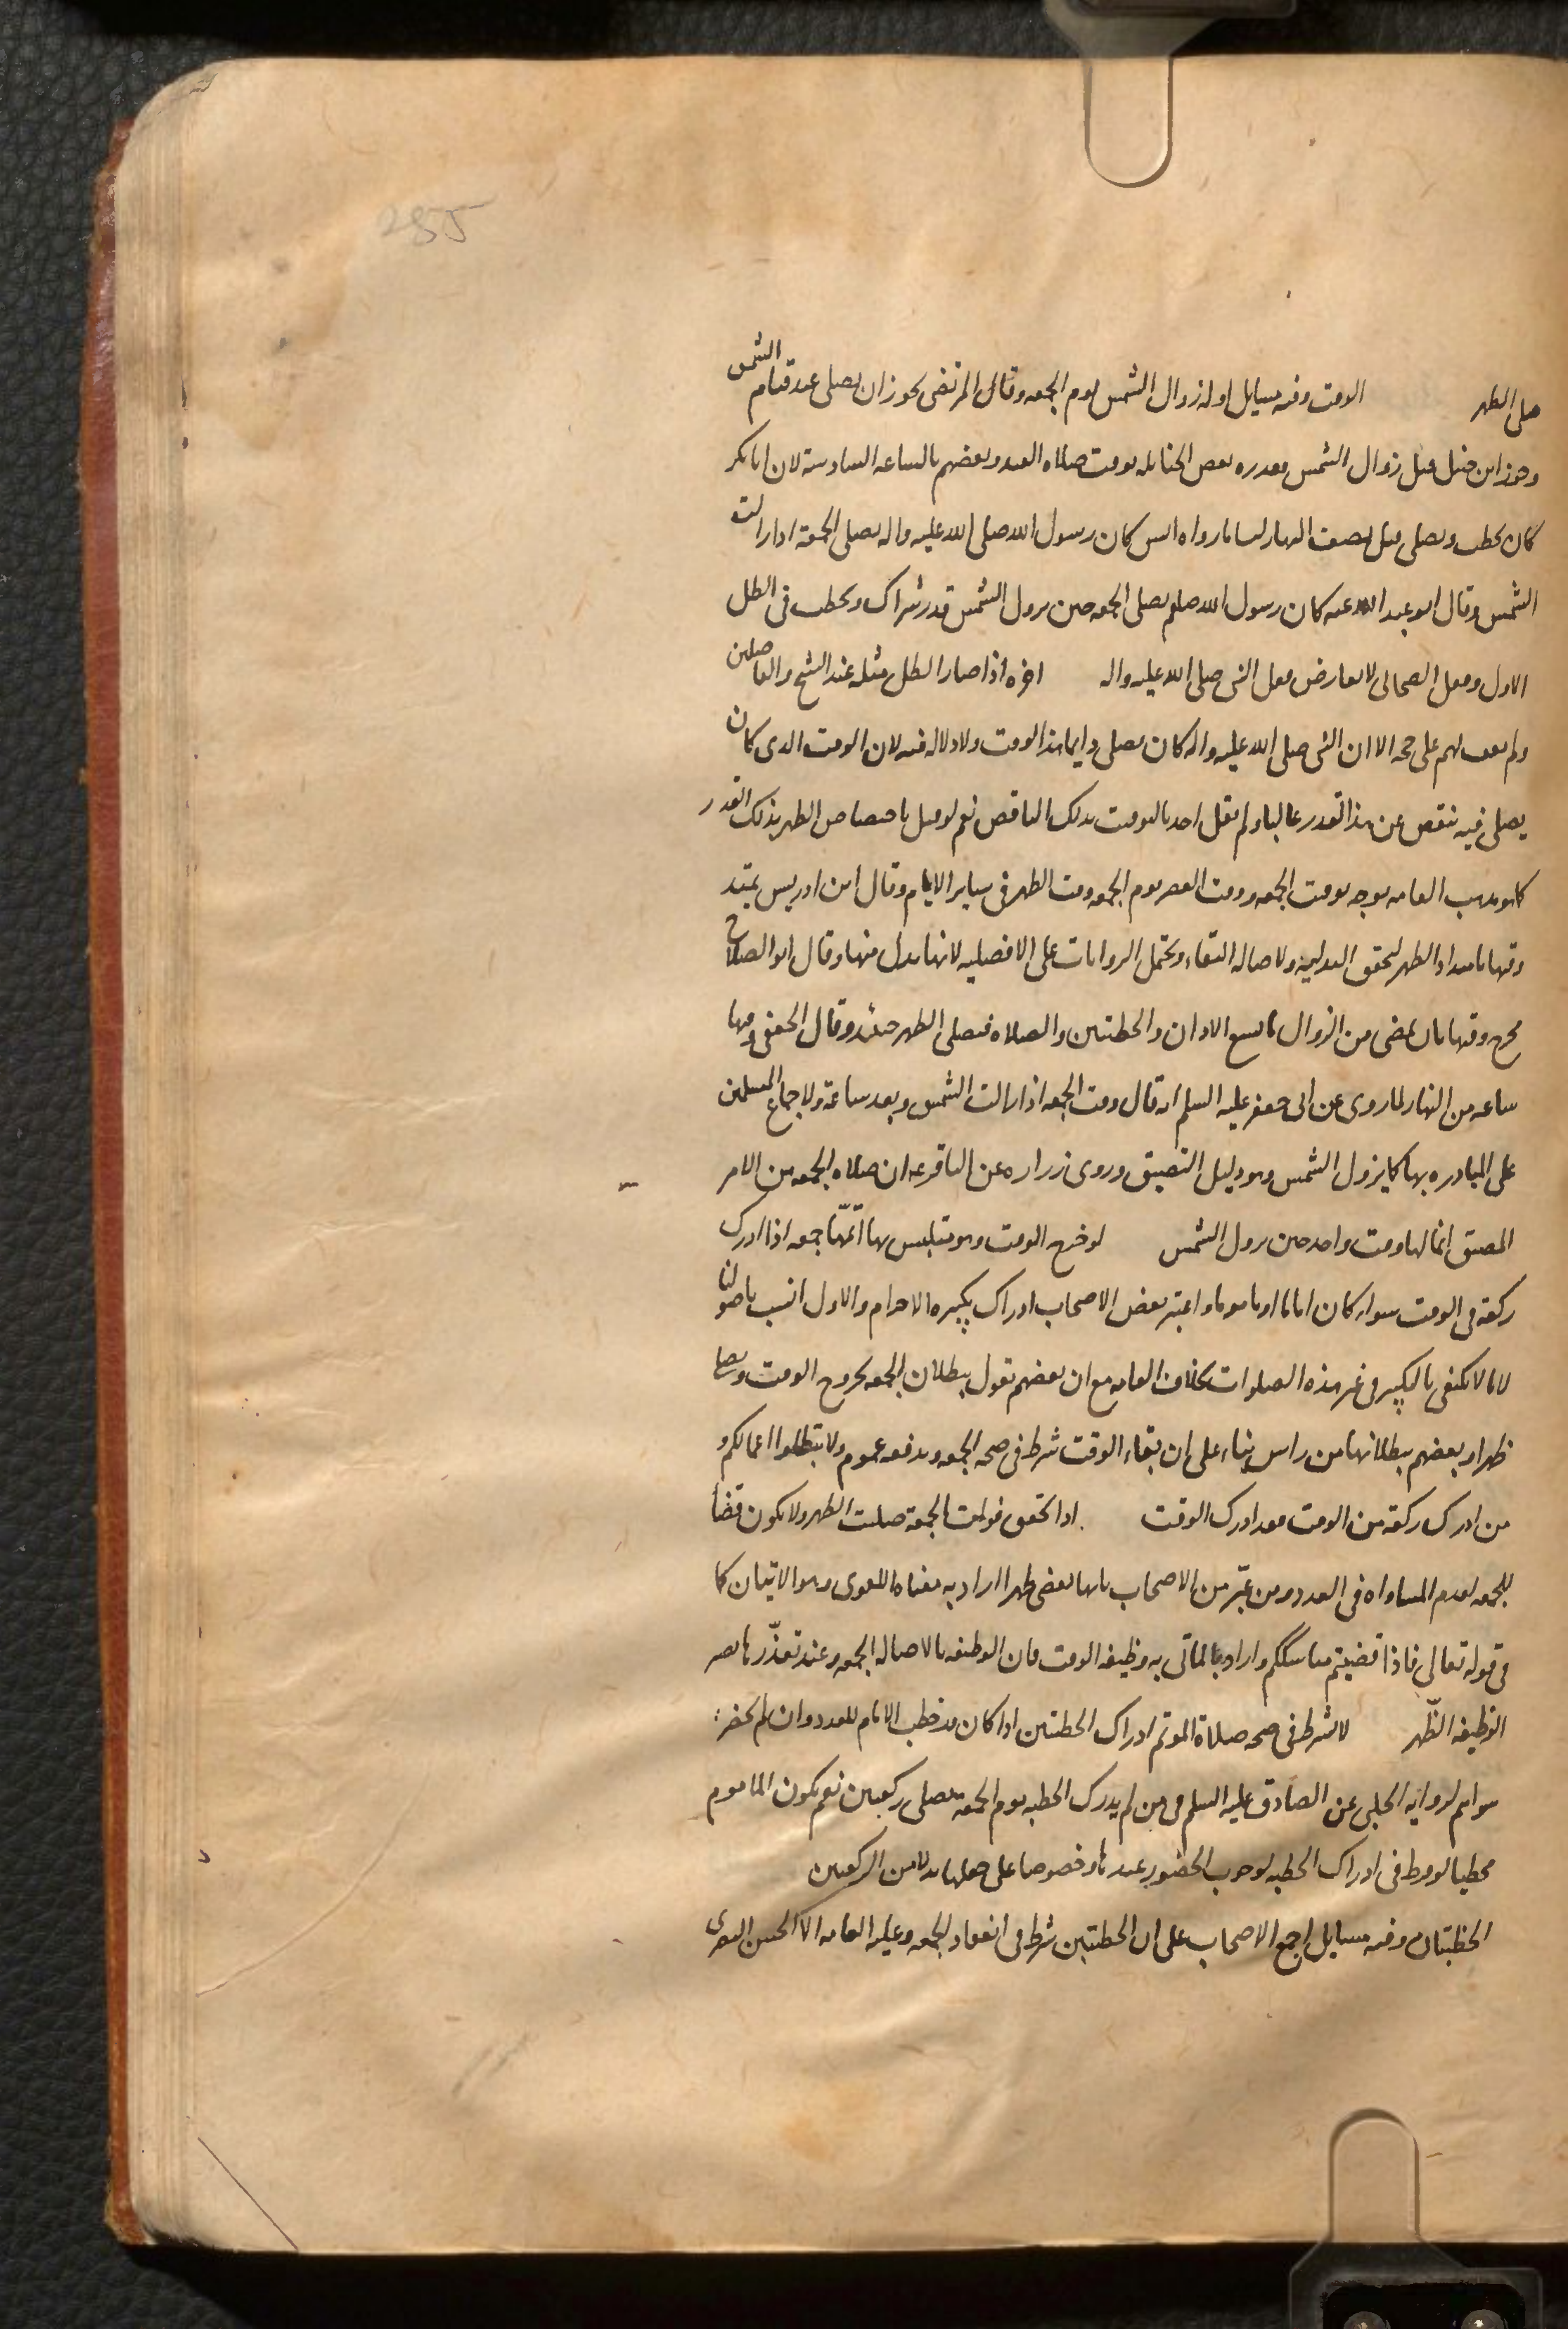 285
صلى الظهر الوقت وفيه مسايل اوله زوال الشمس يوم الجمعه وقال المرتضى يجوز ان يصلى عند قيام الشمس
وجوز ابن حنبل قبل زوال الشمس فقدره بعض الحنابله بوقت صلاه العيد وبعضهم بالساعه السادسة لان ابا بكر
كان يخطب ويصلى قبل نصف النهار لنا ما رواه انس كان رسول الله صلى الله عليه واله يصلى الجمعة اذا زالت
الشمس وقال ابو عبد الله عه كان رسول الله صلعم يصلى الجمعه حين تزول الشمس قدر شراك ويخطب فى الظل
الاول وفعل الصحابى لا يعارض فعل النبى صلى الله عليه واله اخره اذا صار الظل مثله عند الشيخ والفاضلين
ولم نقف لهم على حجه الا ان النبى صلى الله عليه واله كان يصلى دايما هذا الوقت ولا دلاله فيه لان الوقت الذى كان
يصلى فيه ينقص عن هذا القدر غالبا ولم يقل احد بالتوقيت بذلك الناقص نعم لو قيل باختصاص الظهر بذلك القدر
كما هو مذهب العامه توجه توقيت الجمعه ووقت العصر يوم الجمعه وقت الظهر فى ساير الايام وقال ابن ادريس يمتد
وقتها بامتداد الظهر لتحقق البدلية ولاصاله البقاء وتحمل الروايات على الافضليه لانها بدل منها وقال ابو الصلاح
يخرج وقتها بان يمضى من الزوال ما يسع الاذان والخطبتين والصلاه فيصلى الظهر حينئذ وقال الجعفى وقتها
ساعه من النهار لما روى عن ابى جعفر عليه السلم انه قال وقت الجمعه اذا زالت الشمس وبعده ساعة ولاجماع المسلمين
على المبادره بها كما يزول الشمس وهو دليل التضييق وروى زراره عن الباقر عه ان صلاه الجمعه من الامر
المضيق انما لها وقت واحد حين تزول الشمس لو خرج الوقت وهو متلبس بها اتمّها جمعه اذا ادرك
ركعه فى الوقت سواء كان اماما او ماموما واعتبر بعض الاصحاب ادراك تكبيره الاحرام والاول انسب باصولنا
لانا لا نكتفى بالتكبير فى غير هذه الصلوات بخلاف العامه مع ان بعضهم يقول ببطلان الجمعه بخروج الوقت ويصلها
ظهرا وبعضهم ببطلانها من راس بناء على ان بقاء الوقت شرط فى صحه الجمعه ويدفعه عموم ولا تبطلوا اعمالكم و
من ادرك ركعه من الوقت فقد ادرك الوقت اذا تحقق فوات الجمعة صليت الظهر ولا يكون قضا
للجمعه لعدم المساواه فى العدد ومن عبّر من الاصحاب بانها يقضى ظهرا اراد به معناه اللغوى وهو الاتيان كما
فى قوله تعالى فاذا قضيتم مناسككم واراد بالماتى به وظيفه الوقت فان الوظيفه بالاصاله الجمعه وعند تعذّرها يصير
الوظيفه الظّهر لا يشترط فى صحه صلاة الموتم ادراك الخطبتين اذا كان قد خطب الامام للعدد وان لم يحضر
سواهم لروايه الحلبى عن الصادق عليه السلم فى من لم يدرك الخطبه يوم الجمعه يصلى ركعتين نعم يكون الماموم
مخطيا لو فرط فى ادراك الخطبه لوجوب الحضور عندها وخصوصا على جعلها بدلا من الركعتين
الخطبتان وفيه مسايل اجمع الاصحاب على ان الخطبتين شرط فى انعقاد الجمعه وعليه العامه الا الحسن البصرى